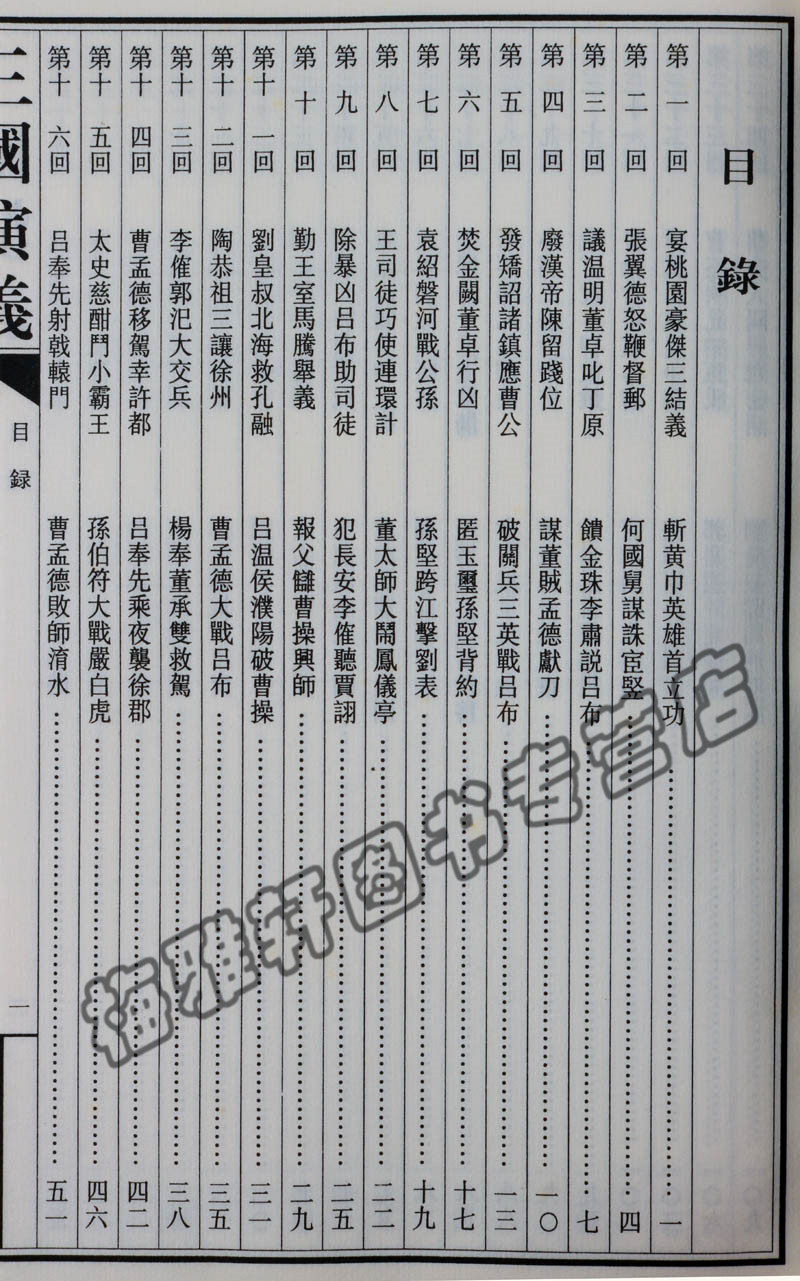 目錄
第一回 宴桃園豪傑三結義 斬黃巾英雄首立功 一
第二回 張翼德怒鞭督郵 何國舅謀誅宦竪 四
第三回 議温明董卓叱丁原 饋金珠李肅説吕布 七
第四回 廢漢帝陳留踐位 謀董賊孟德獻刀 一〇
第五回 發矯詔諸鎮應曹公 破關兵三英戰吕布 一三
第六回 焚金闕董卓行凶 匿玉璽孫堅背約 十七
第七回 袁紹磐河戰公孫 孫堅跨江擊劉表 十九
第八回 王司徒巧使連環計 董太師大鬧鳳儀亭 二二
第九回 除暴凶吕布助司徒 犯長安李傕聽賈詡 二五
第十回 勤王室馬騰舉義 報父讎曹操興師 二九
第十一回 劉皇叔北海救孔融 吕温侯濮陽破曹操 三一
第十二回 陶恭祖三讓徐州 曹孟德大戰吕布 三五
第十三回 李傕郭汜大交兵 楊奉董承雙救駕 三八
第十四回 曹孟德移駕幸許都 吕奉先乘夜襲徐郡 四二
第十五回 太史慈酣鬥小霸王 孫伯符大戰嚴白虎 四六
第十六回 吕奉先射戟轅門 曹孟德敗師淯水 五一
三國演義
目録
一
梅雅轩图书专营店